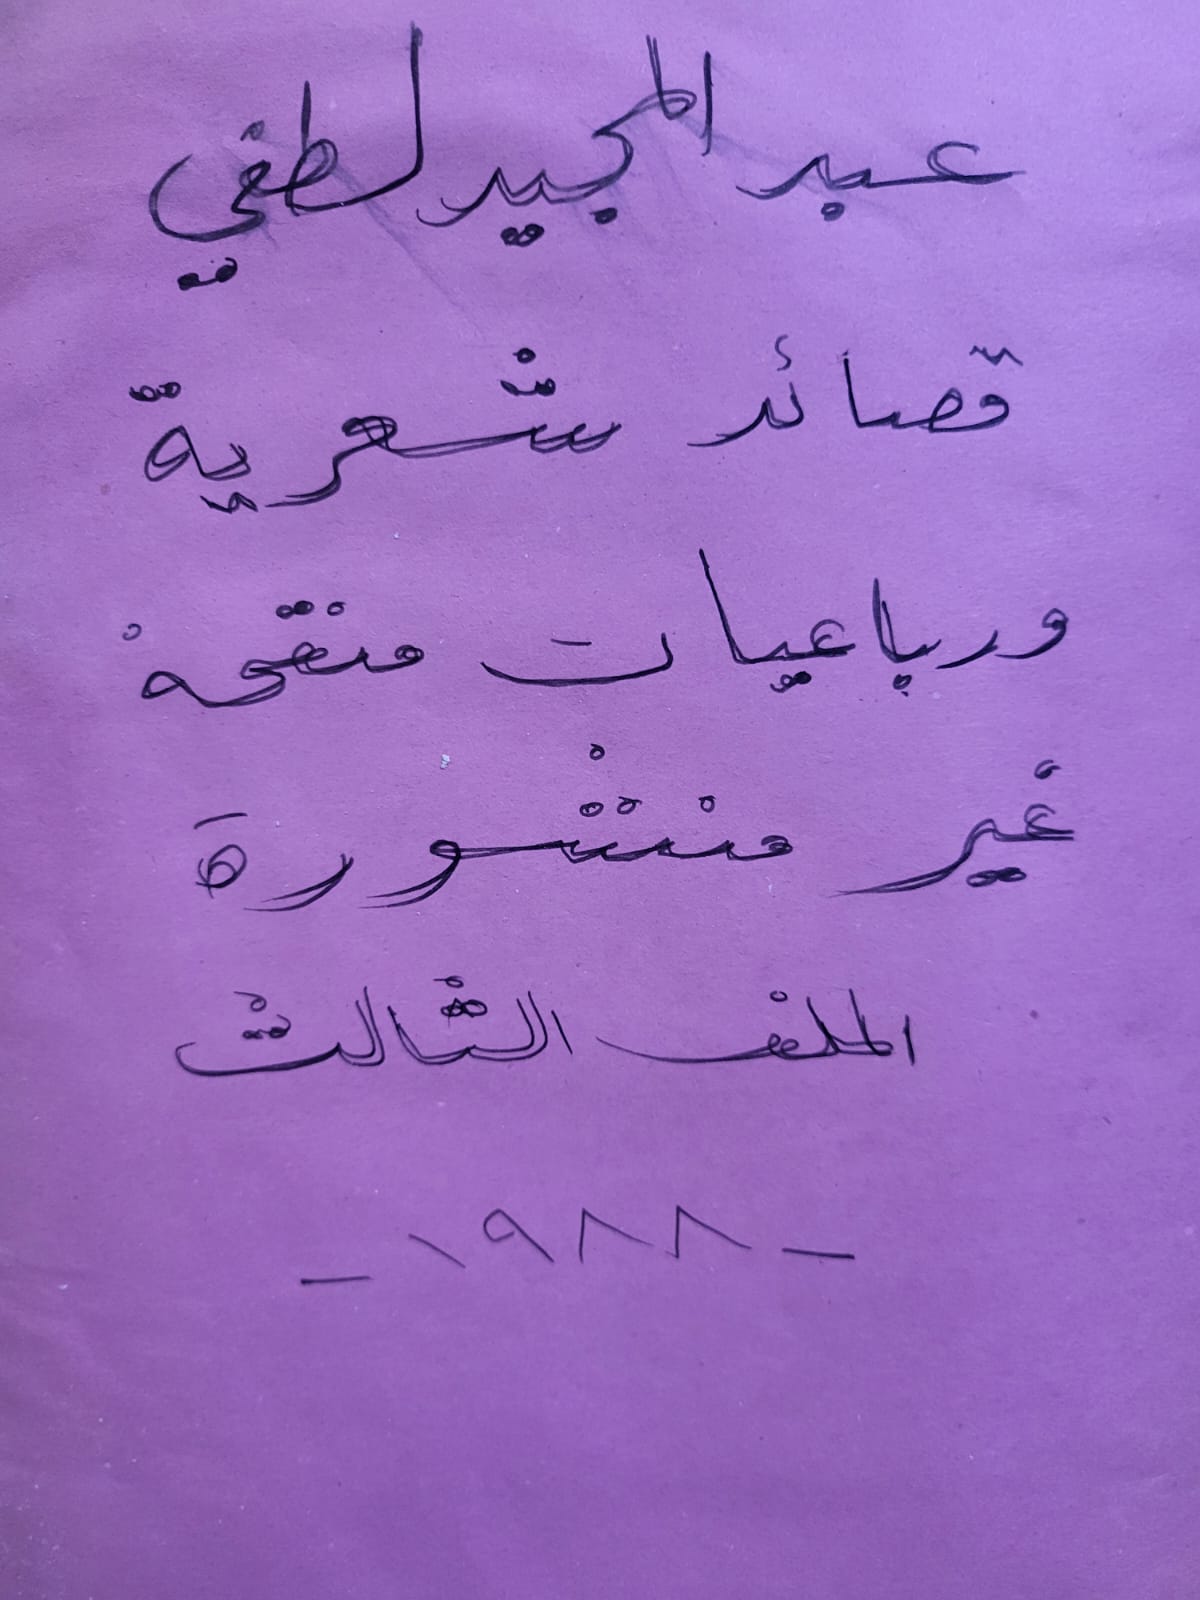 عبد المجيد لطفي
قصائد شعرية
ورباعيات منقحة
غير منشورة
الملف الثالث
- ١٩٨٨ -